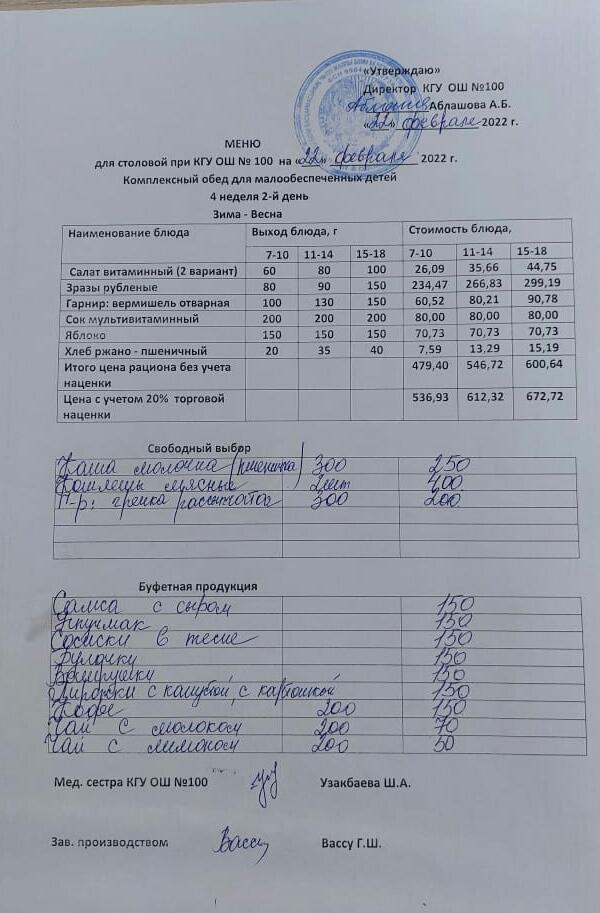 «Утверждаю»
Директор КГУ ОШ №100
Аблашова А.Б.
«22» февраля 2022 г.
МЕНЮ
для столовой при КГУ ОШ № 100 на «22» февраля 2022 г.
Комплексный обед для малообеспеченных детей
4 неделя 2-й день
Зима - Весна
Наименование блюда Выход блюда, г Стоимость блюда,
7-10 11-14 15-18 7-10 11-14 15-18
Салат витаминный (2 вариант) 60 80 100 26,09 35,66 44,75
Зразы рубленые 80 90 150 234,47 266,83 299,19
Гарнир: вермишель отварная 100 130 150 60,52 80,21 90,78
Сок мультивитаминный 200 200 200 80,00 80,00 80,00
Яблоко 150 150 150 70,73 70,73 70,73
Хлеб ржано - пшеничный 20 35 40 7,59 13,29 15,19
Итого цена рациона без учета 479,40 546,72 600,64
наценки
Цена с учетом 20% торговой 536,93 612,32 672,72
наценки
Свободный выбор
Каша молочна (пшеничка) 300 250
Котлеты мясные 2шт 400
Г-р: гречка рассыпчатая 300 200
Буфетная продукция
Самса с сыром 150
Эпучмак 150
Сосиски в тесте 150
Булочки 150
Ватрушки 150
Пирожки с капустой, с картошкой 150
Кофе 200 150
Чай с молоком 200 70
Чай с лимоном 200 50
Мед. сестра КГУ ОШ №100 Узакбаева Ш.А.
Зав. производством Вассу Вассу Г.Ш.